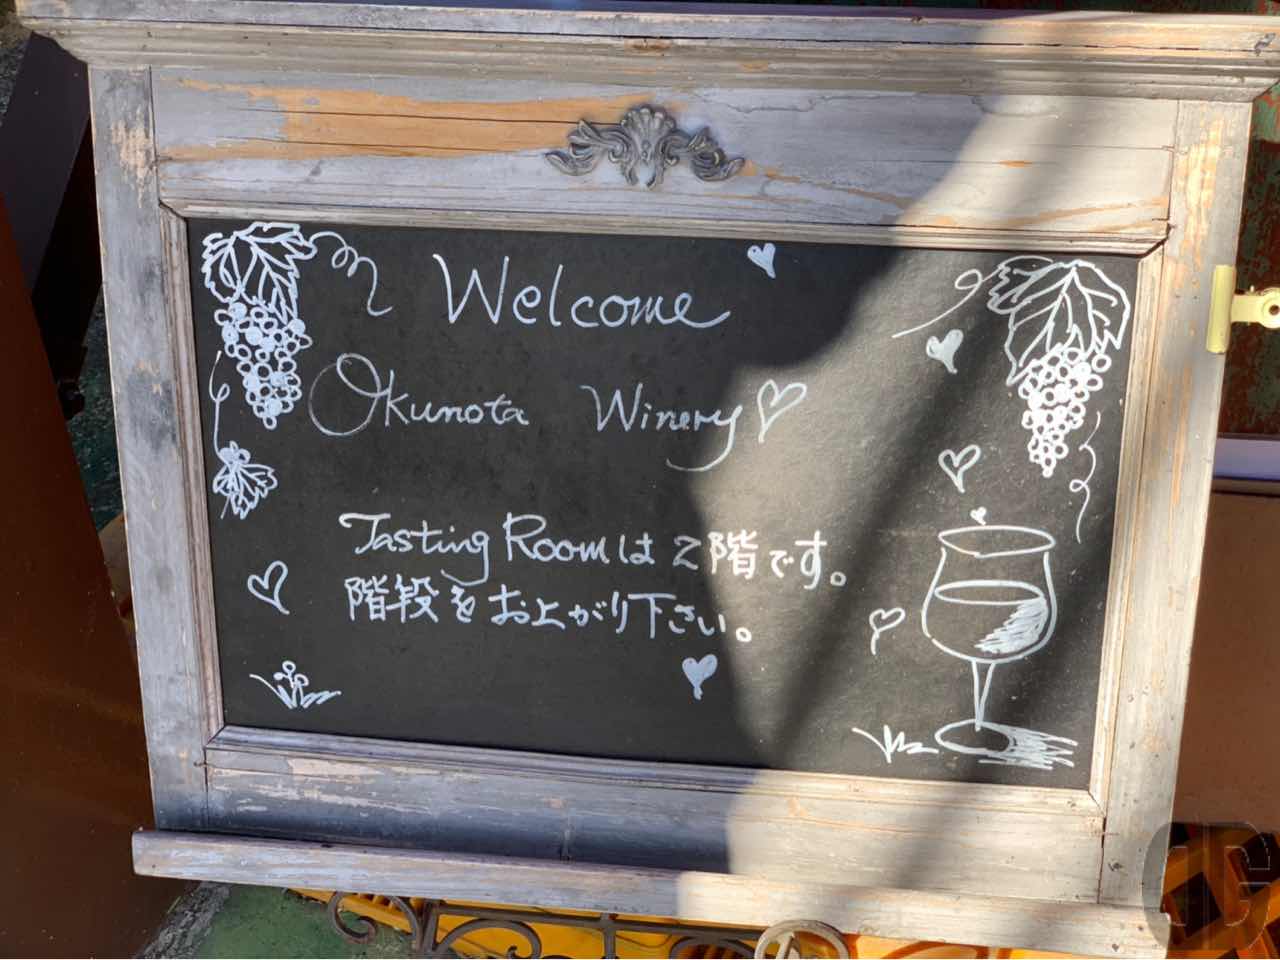 Welcome
Okunota Winery
Tasting Roomは2階です。
階段をお上がり下さい。